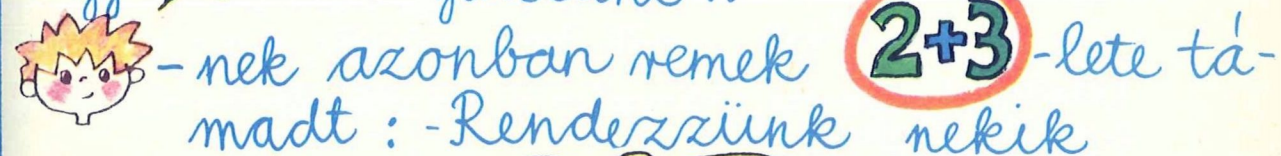 -nek azonban remek 2+3 -lete tá-
madt : -Rendezzünk nekik